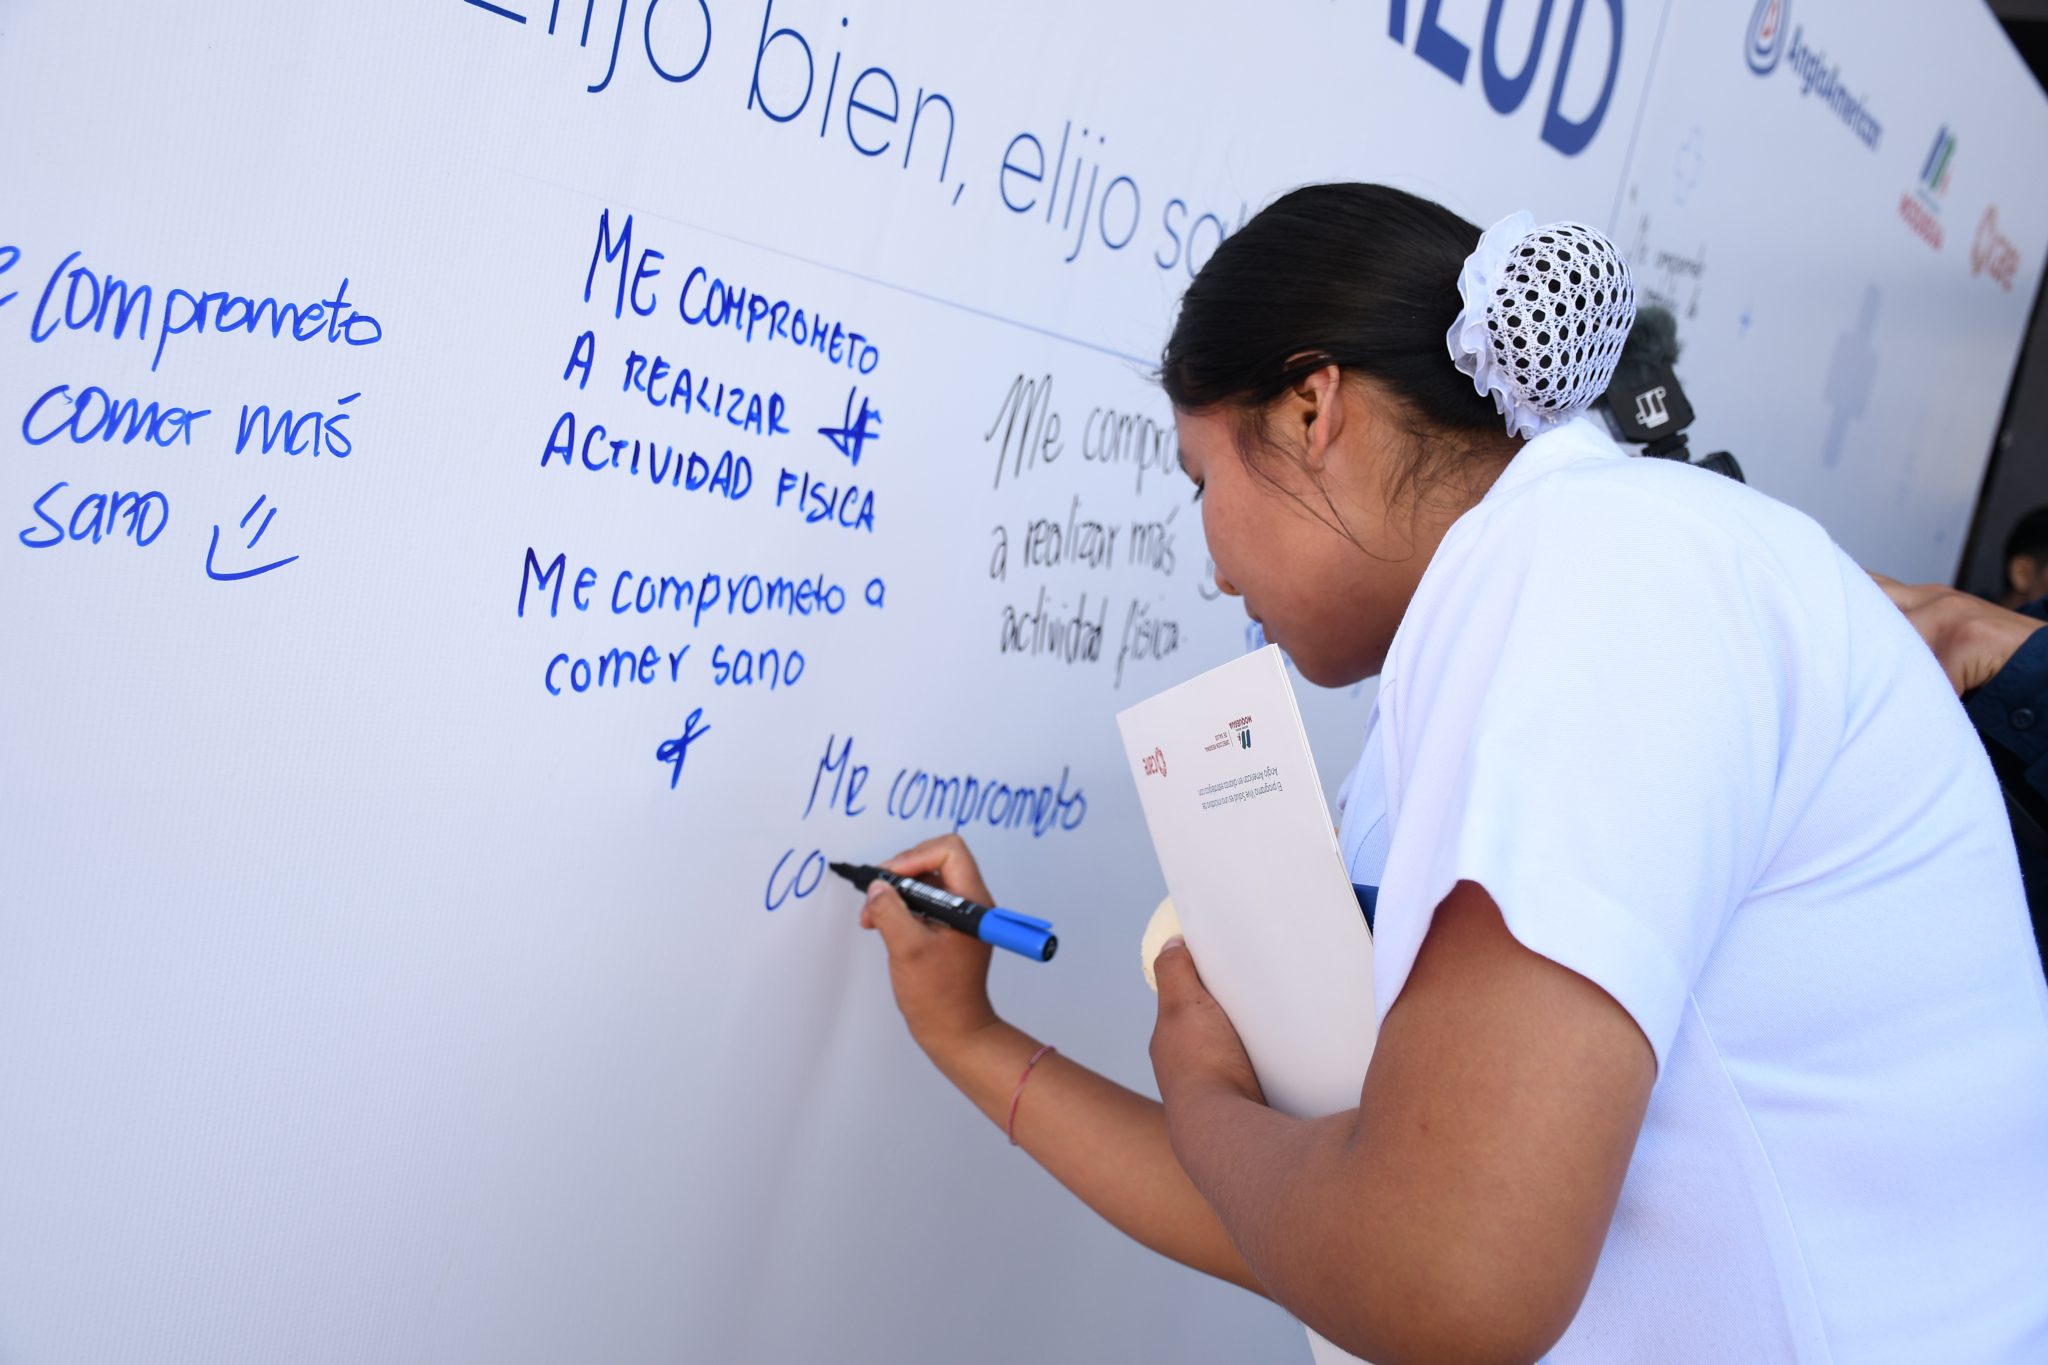 SALUD
Elijo bien, elijo
AngloAmerican
MOQUEGUA
care
comprometo
comer más
sano
ME COMPROMETO
A REALIZAR
ACTIVIDAD FISICA
Me comprometo a
comer sano
Me
a realizar más
actividad física.
Me comprometo
co
El programa Vive Salud es una iniciativa de
Anglo American en alianza estratégica con:
MOQUEGUA
care